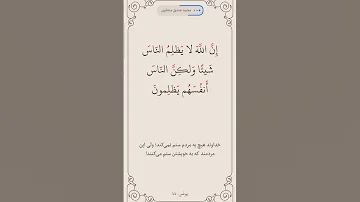 إِنَّ اللَّهَ لا يَظلِمُ النّاسَ
شَيئًا وَلٰكِنَّ النّاسَ
أَنفُسَهُم يَظلِمونَ
خداوند هیچ به مردم ستم نمی‌کند؛ ولی این
مردمند که به خویشتن ستم می‌کنند!